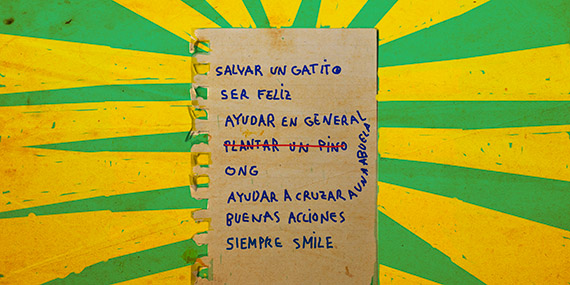 SALVAR UN GATITO
SER FELIZ
AYUDAR EN GENERAL
PLANTAR UN PINO
ONG
AYUDAR A CRUZAR A UNA ABUELA
BUENAS ACCIONES
SIEMPRE SMILE